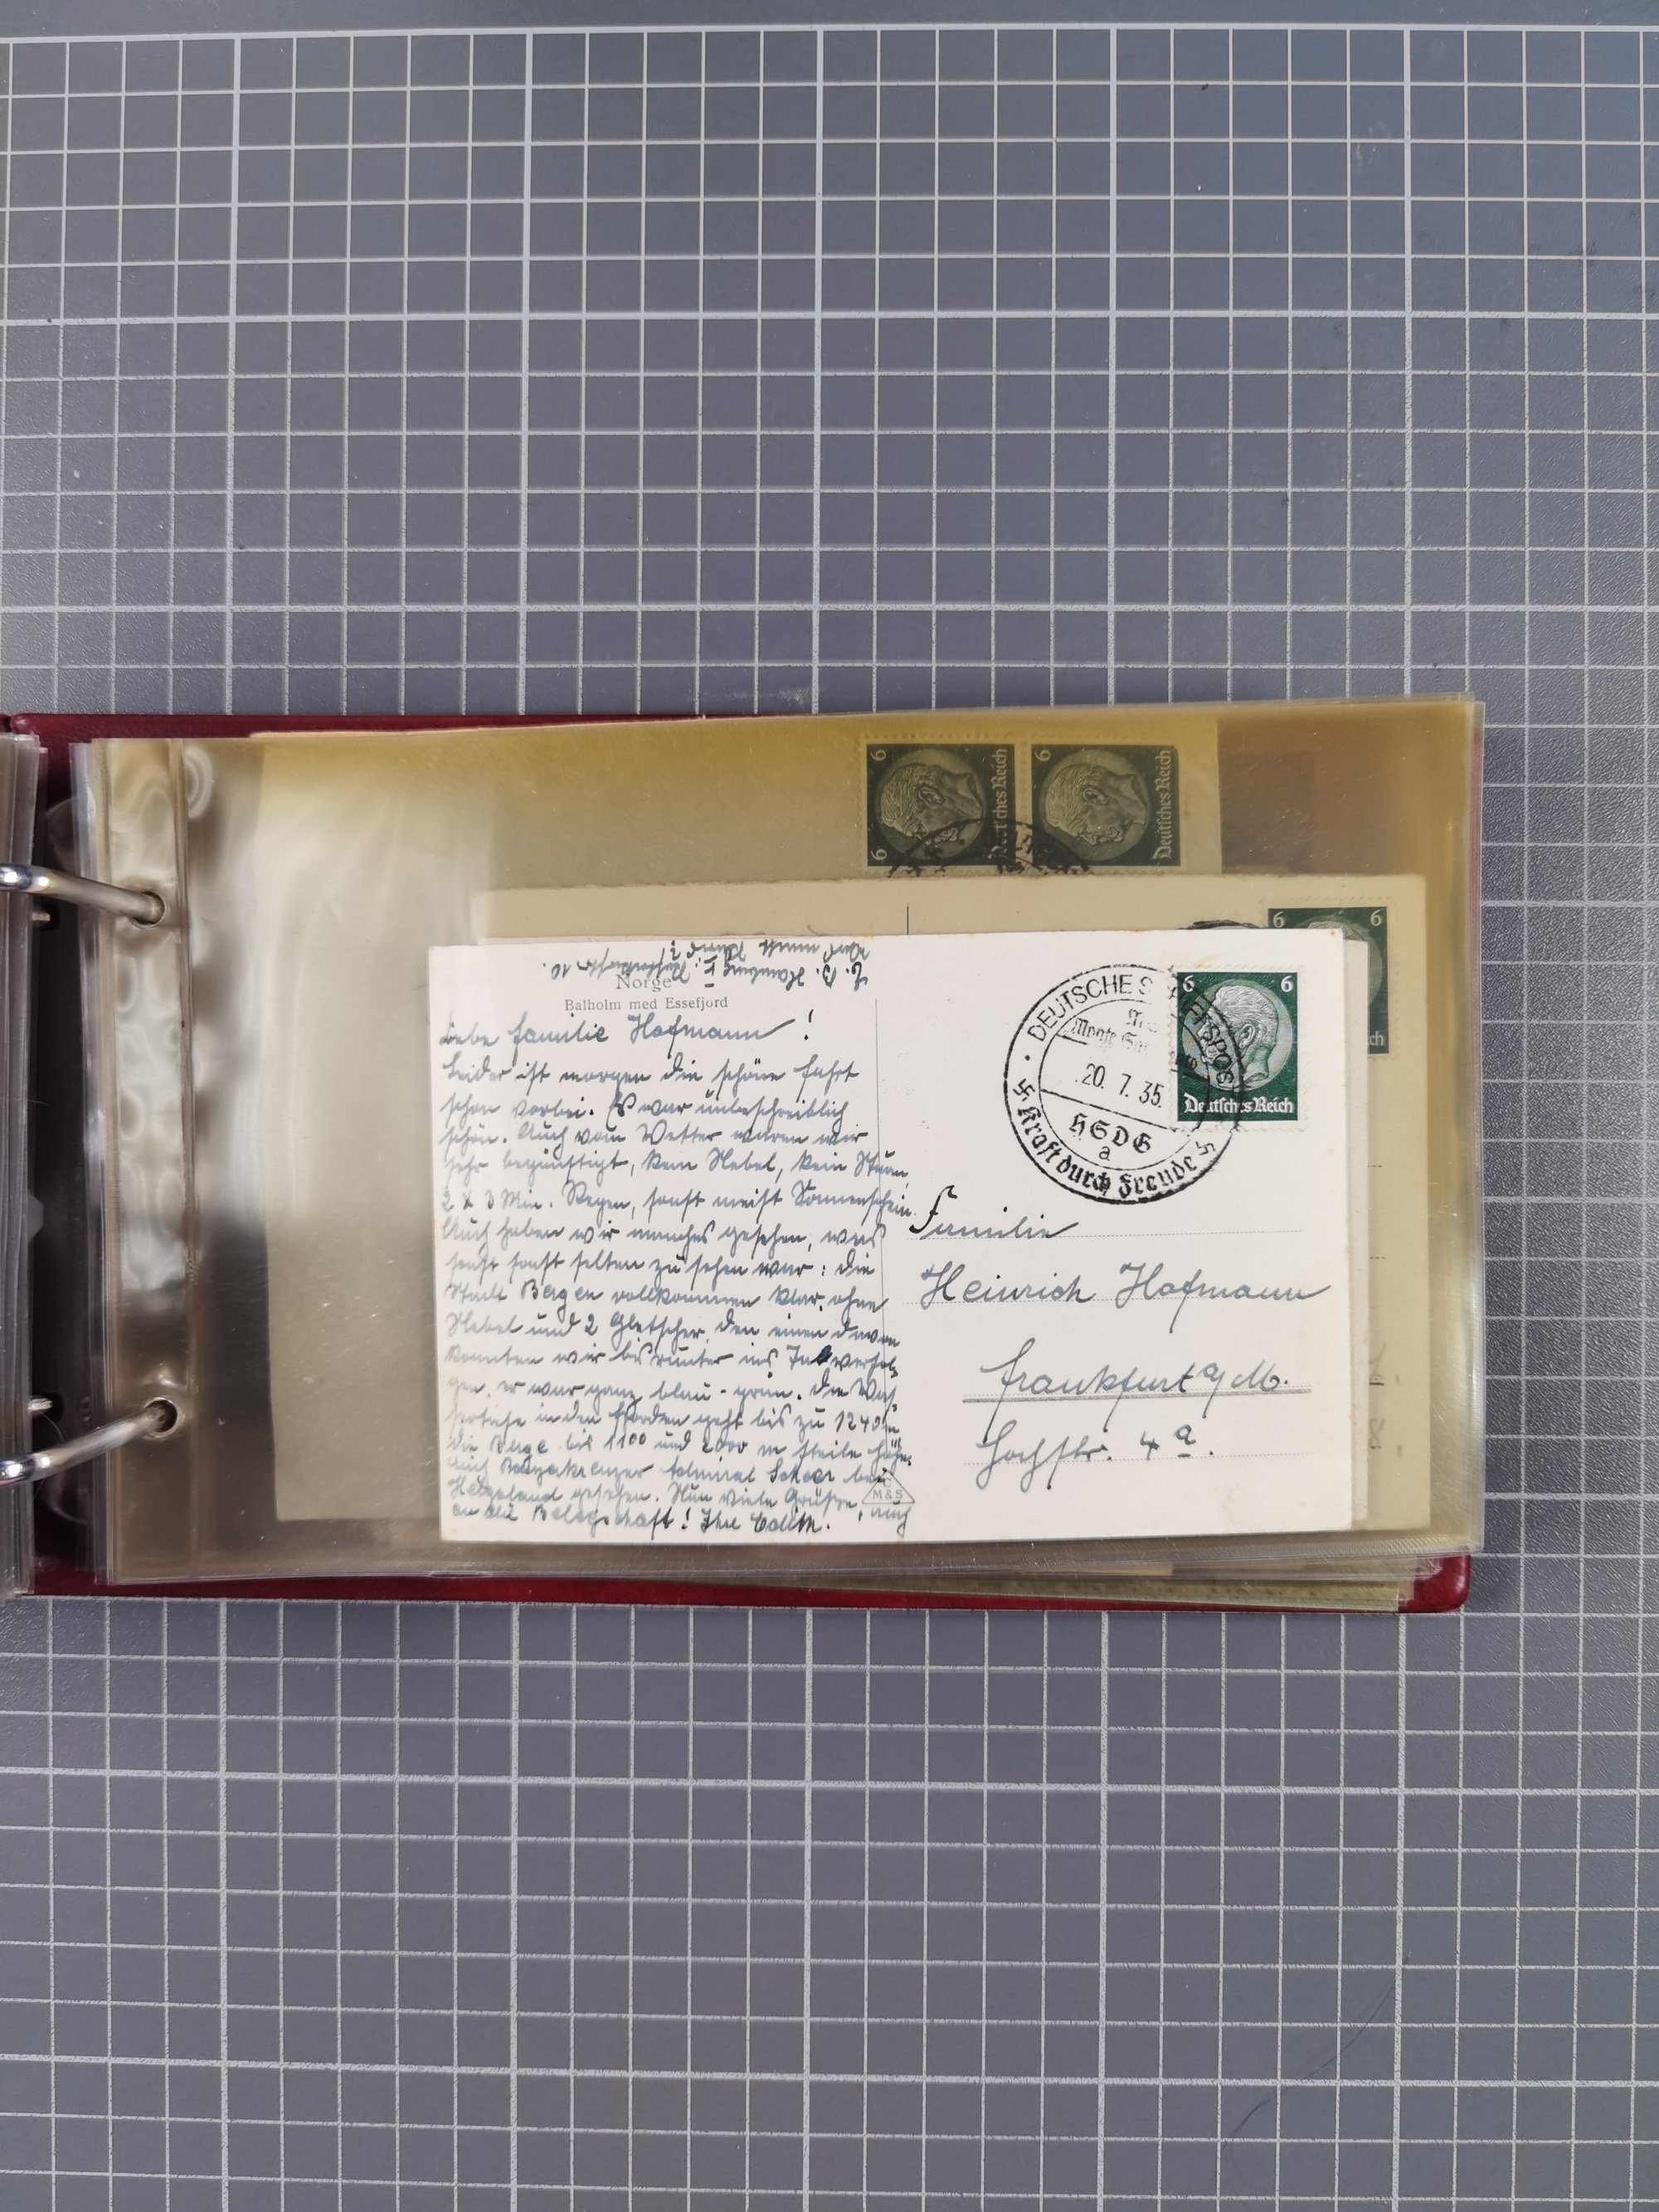 6
6
Deutsches Reich
6
Deutsches Reich
6
6
ch
Norge
Balholm med Essefjord
Liebe Familie Hofmann!
Leider ist morgen die schöne Fahrt
schon vorbei. Es war unbeschreiblich
schön. Auch vom Wetter waren wir
sehr begünstigt, kein Nebel, kein Sturm,
2 x 3 Min. Regen, sonst meist Sonnenschein.
Auch haben wir manches gesehen, was
sonst selten zu sehen war: die
Stadt Bergen vollkommen klar, ohne
Nebel und 2 Gletscher, den einen davon
konnten wir bis runter ins Tal verfol-
gen, er war ganz blau-grün. Die Was-
sertiefe in den Fjorden geht bis zu 1240 m
die Berge bis 1100 und 2000 m steile Höhe.
Auch Panzerkreuzer Admiral Scheer bei
Helgoland gesehen. Nun viele Grüße, auch
an die Belegschaft! Ihre Edith.
z. B. Hamburg
10.
C
M&S
DEUTSCHE S
HSPOS
Monte
20.7.35.
HSDG
a
Kraft durch Freude
6
6
Deutsches Reich
Familie
Heinrich Hofmann
Frankfurt a/M.
Hochstr. 4 a.